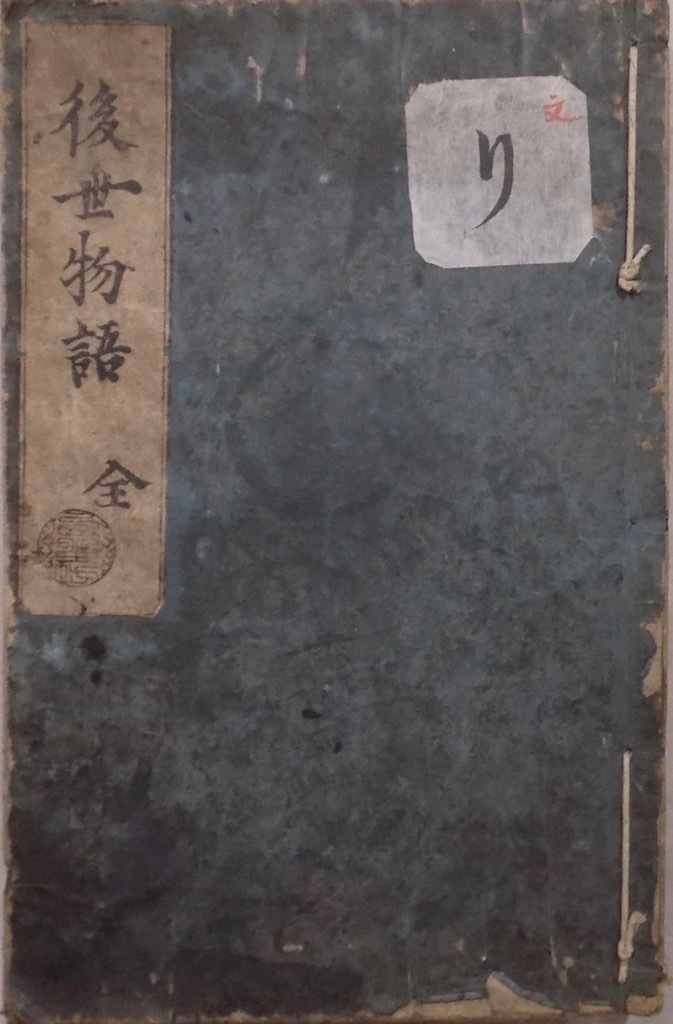 文
り
後世物語 全